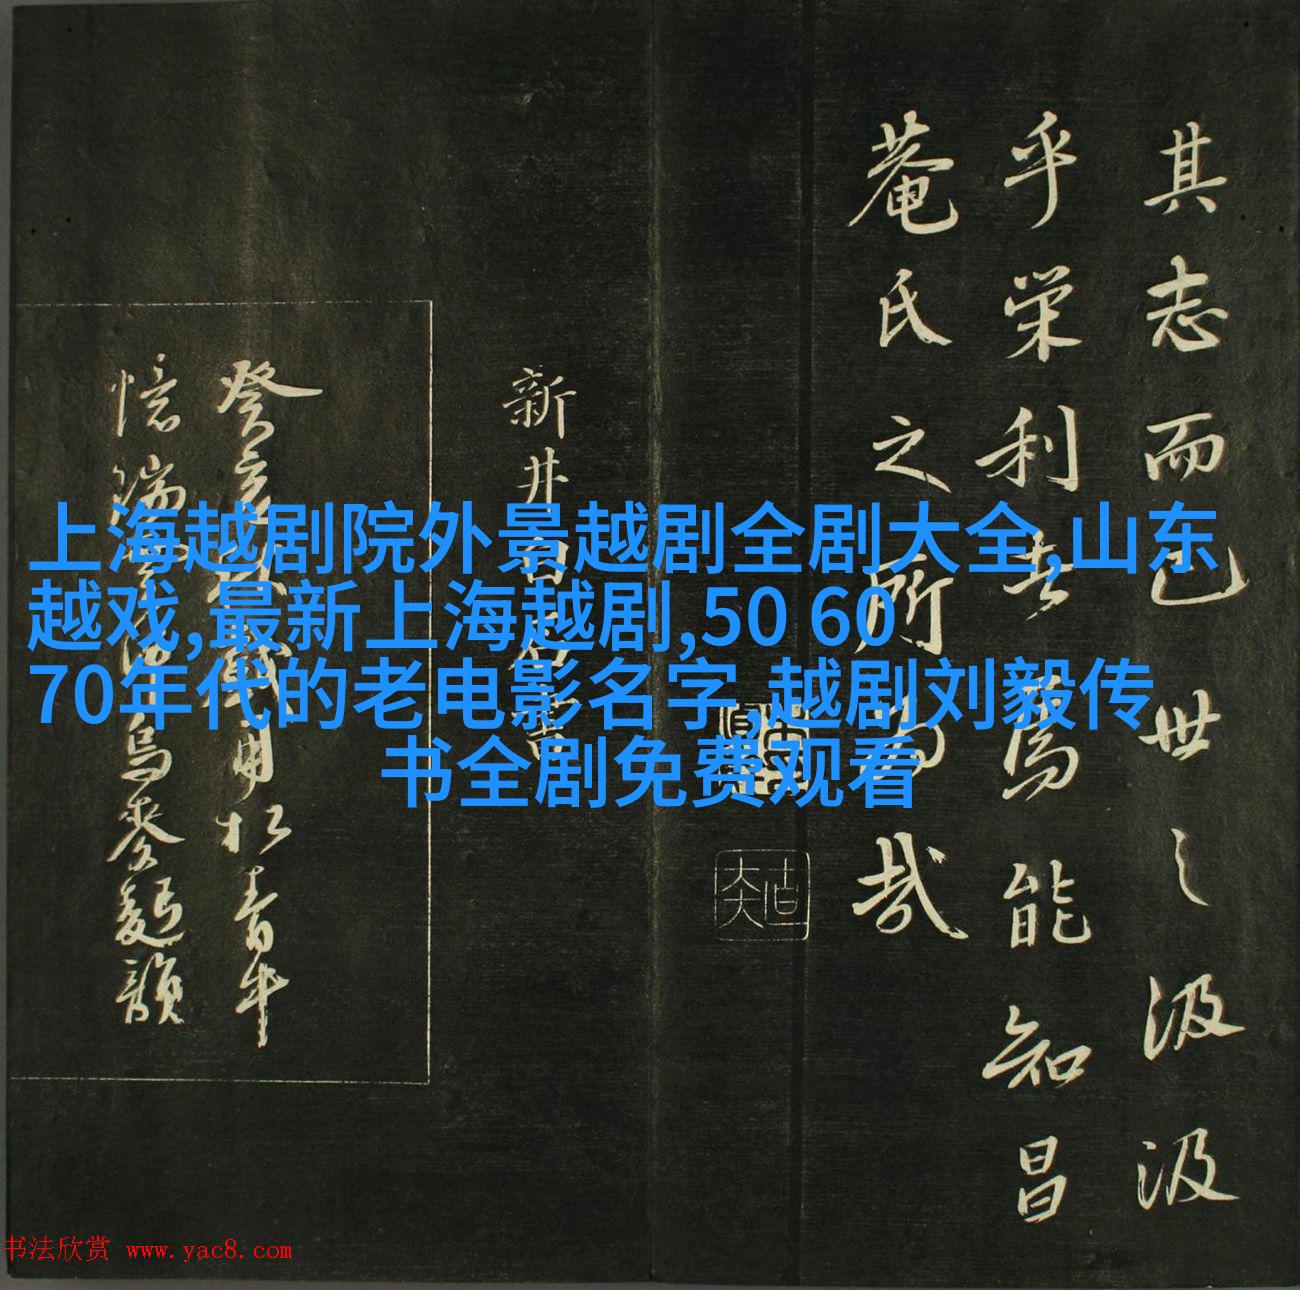 其志而已世之汲汲
乎荣利者焉能知昌
菴氏之所为哉
新井白石書
癸亥
用松青年
憶
烏麥麺韻
上海越剧院外景越剧全剧大全,山东
越戏,最新上海越剧,50 60
70年代的老电影名字,越剧刘毅传
书全剧免费观看
书法欣赏 www.yac8.com